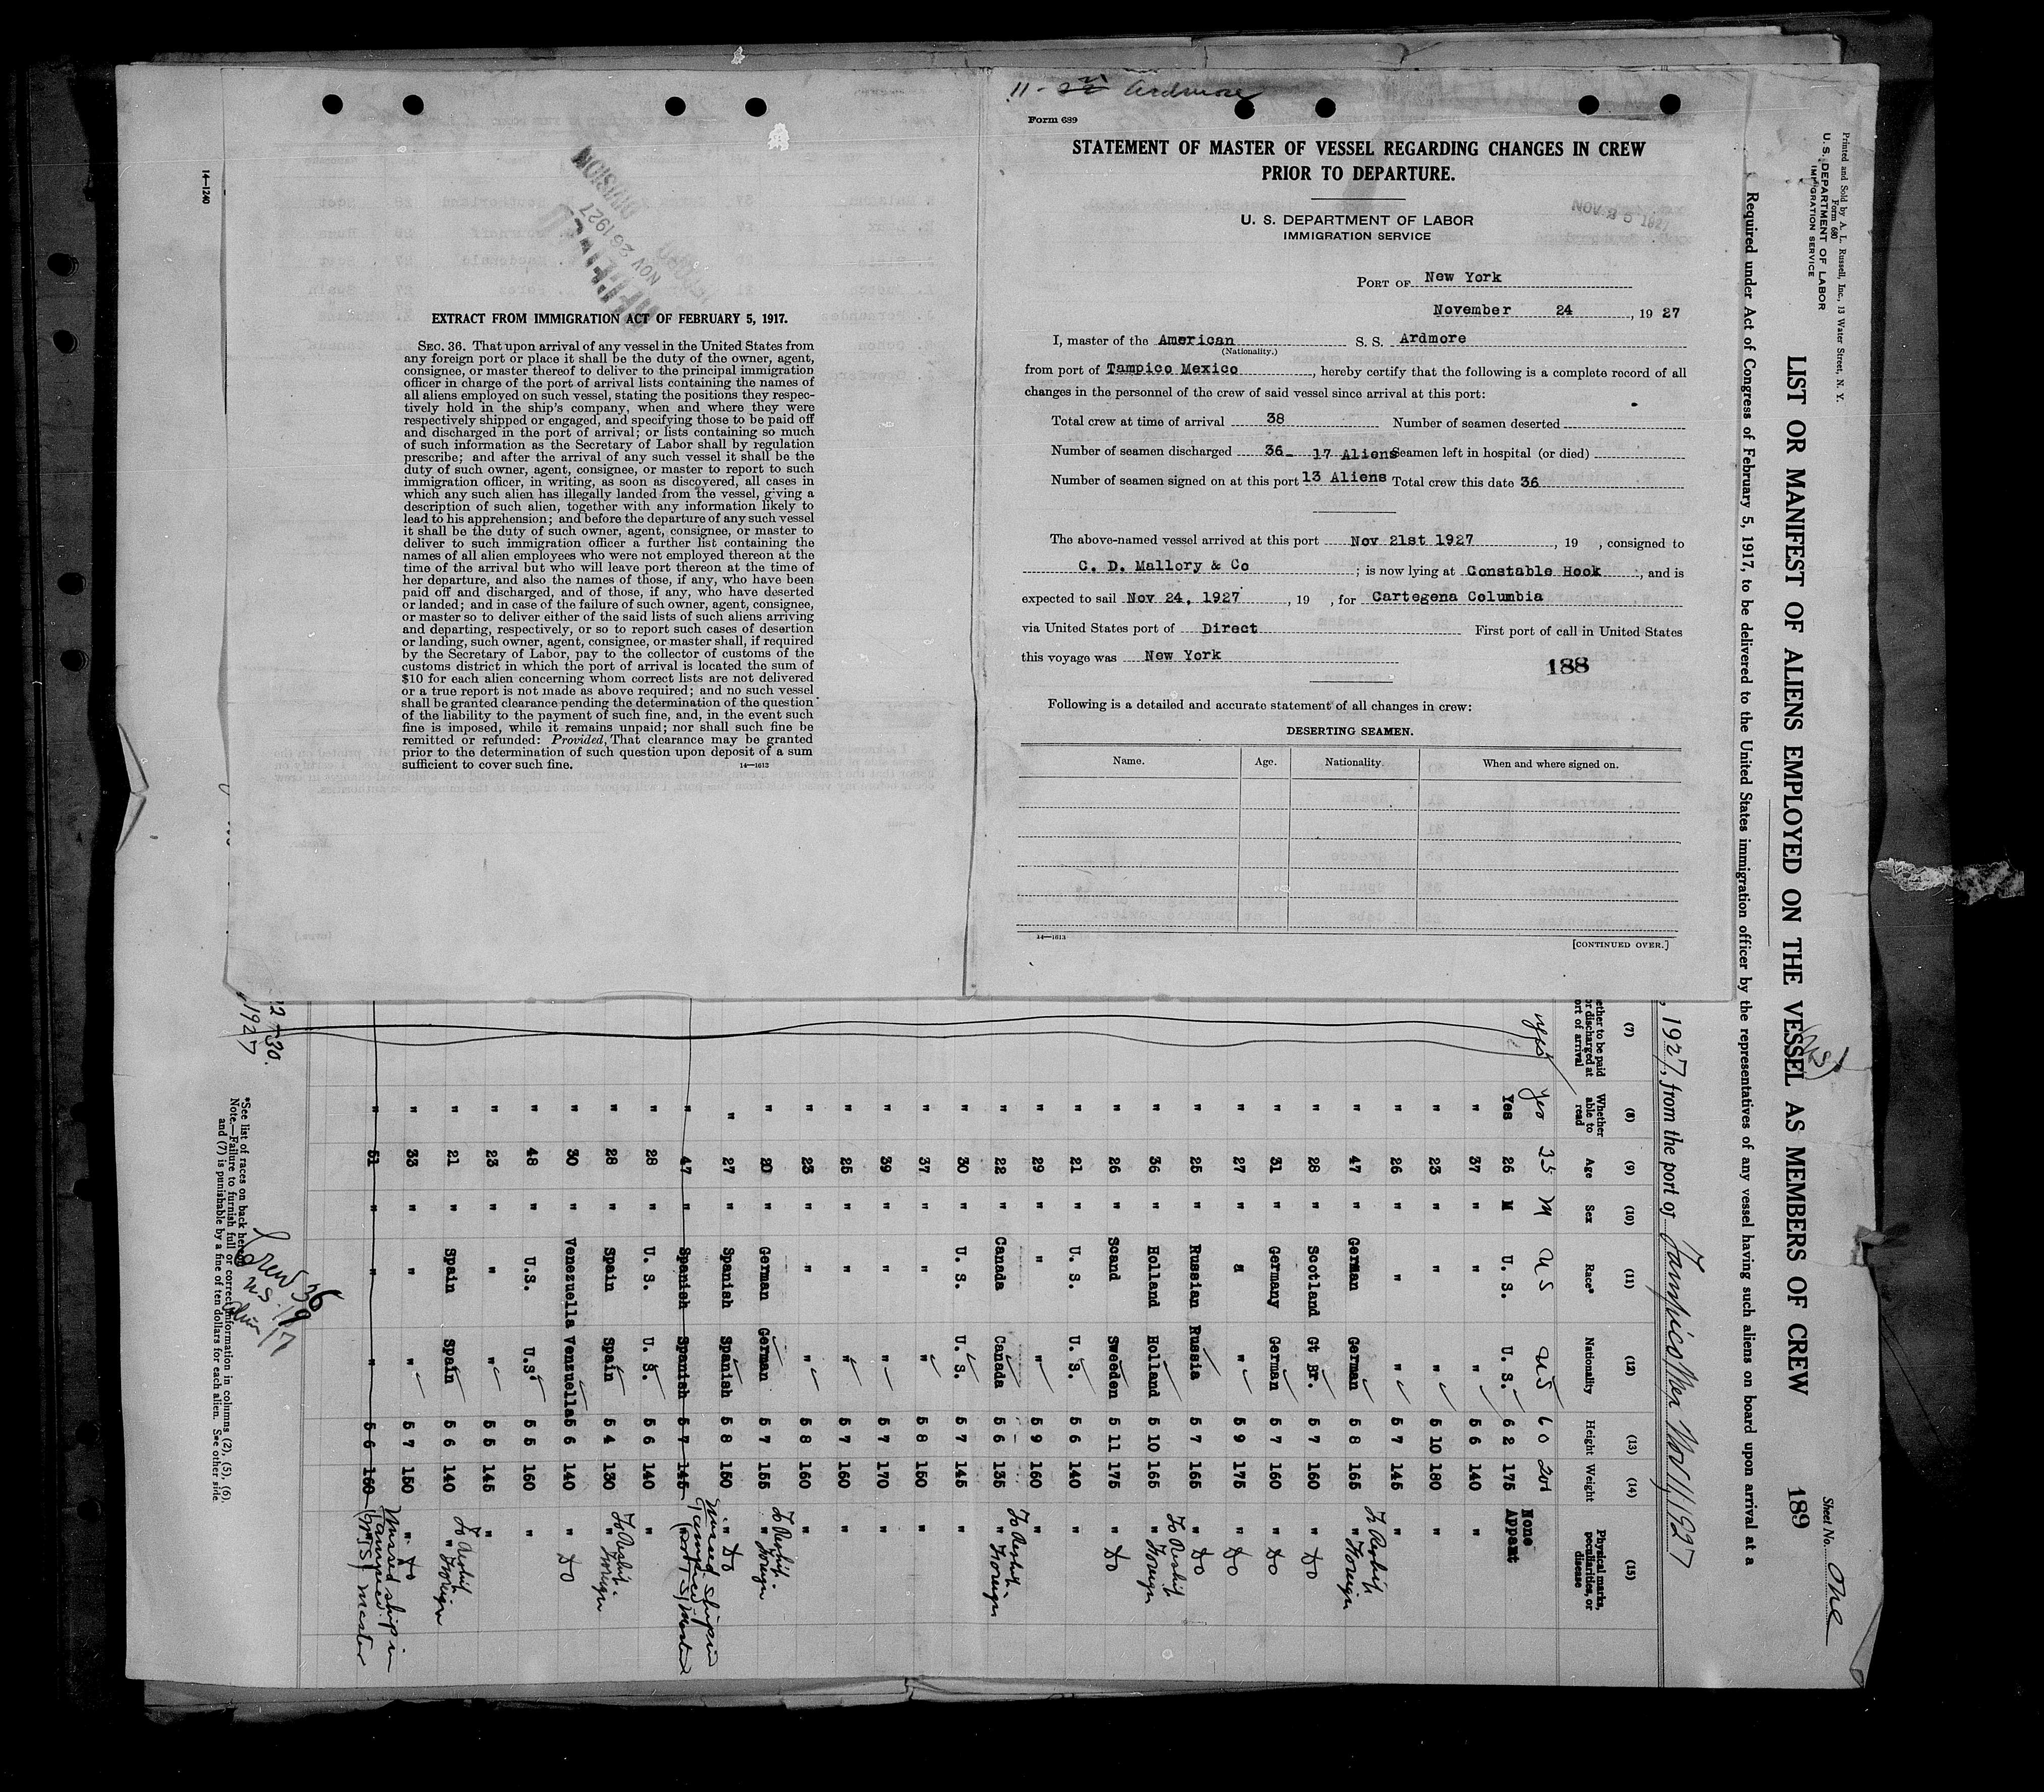 11-21 Ardmore
Form 689
STATEMENT OF MASTER OF VESSEL REGARDING CHANGES IN CREW
PRIOR TO DEPARTURE.
U. S. DEPARTMENT OF LABOR
IMMIGRATION SERVICE
PORT OF New York
November 24, 19 27
I, master of the American S. S. Ardmore
(Nationality.)
from port of Tampico Mexico, hereby certify that the following is a complete record of all
changes in the personnel of the crew of said vessel since arrival at this port:
Total crew at time of arrival 38 Number of seamen deserted
Number of seamen discharged 36 17 Aliens Seamen left in hospital (or died)
Number of seamen signed on at this port 13 Aliens Total crew this date 36
The above-named vessel arrived at this port Nov 21st 1927, 19 , consigned to
C. D. Mallory & Co ; is now lying at Constable Hook, and is
expected to sail Nov 24, 1927, 19 , for Cartegena Columbia
via United States port of Direct First port of call in United States
this voyage was New York
188
Following is a detailed and accurate statement of all changes in crew:
DESERTING SEAMEN.
Name. Age. Nationality. When and where signed on.
14—1613
[CONTINUED OVER.]
14—1240
DIVISION
NOV 26 1927
EXTRACT FROM IMMIGRATION ACT OF FEBRUARY 5, 1917.
SEC. 36. That upon arrival of any vessel in the United States from
any foreign port or place it shall be the duty of the owner, agent,
consignee, or master thereof to deliver to the principal immigration
officer in charge of the port of arrival lists containing the names of
all aliens employed on such vessel, stating the positions they respec-
tively hold in the ship's company, when and where they were
respectively shipped or engaged, and specifying those to be paid off
and discharged in the port of arrival; or lists containing so much
of such information as the Secretary of Labor shall by regulation
prescribe; and after the arrival of any such vessel it shall be the
duty of such owner, agent, consignee, or master to report to such
immigration officer, in writing, as soon as discovered, all cases in
which any such alien has illegally landed from the vessel, giving a
description of such alien, together with any information likely to
lead to his apprehension; and before the departure of any such vessel
it shall be the duty of such owner, agent, consignee, or master to
deliver to such immigration officer a further list containing the
names of all alien employees who were not employed thereon at the
time of the arrival but who will leave port thereon at the time of
her departure, and also the names of those, if any, who have been
paid off and discharged, and of those, if any, who have deserted
or landed; and in case of the failure of such owner, agent, consignee,
or master so to deliver either of the said lists of such aliens arriving
and departing, respectively, or so to report such cases of desertion
or landing, such owner, agent, consignee, or master shall, if required
by the Secretary of Labor, pay to the collector of customs of the
customs district in which the port of arrival is located the sum of
$10 for each alien concerning whom correct lists are not delivered
or a true report is not made as above required; and no such vessel
shall be granted clearance pending the determination of the question
of the liability to the payment of such fine, and, in the event such
fine is imposed, while it remains unpaid; nor shall such fine be
remitted or refunded: Provided, That clearance may be granted
prior to the determination of such question upon deposit of a sum
sufficient to cover such fine. 14—1613
Printed and Sold by A. L. Russell, Inc., 13 Water Street, N. Y.
Form 680
U. S. DEPARTMENT OF LABOR
IMMIGRATION SERVICE
Sheet No. One
LIST OR MANIFEST OF ALIENS EMPLOYED ON THE VESSEL AS MEMBERS OF CREW 189
Required under Act of Congress of February 5, 1917, to be delivered to the United States immigration officer by the representatives of any vessel having such aliens on board upon arrival at a
, 1927, from the port of Tampico Mex Nov 11, 1927
(7) (8) (9) (10) (11) (12) (13) (14) (15)
ether to be paid or discharged at ort of arrival Whether able to read Age Sex Race* Nationality Height Weight Physical marks, peculiarities, or disease
yes 35 M US US 6 0 200
Yes 26 M U. S. U. S. 6 2 175 None Appant
" 37 " " " 5 6 140 "
" 23 " " " 5 10 180 "
" 26 " " " 5 7 145 "
" 47 " German German 5 8 165 " To Reship Foreign
" 28 " Scotland Gt Br. 5 7 160 " DO
" 31 " Germany German 5 7 160 " DO
" 27 " " " 5 9 175 " DO
" 25 " Russian Russia 5 7 165 " DO
" 36 " Holland Holland 5 10 165 " To Reship Foreign
" 26 " Scand Sweeden 5 11 175 " DO
" 21 " U. S. U. S. 5 6 140 "
" 29 " " " 5 9 160 "
" 22 " Canada Canada 5 6 135 " To Reship Foreign
" 30 " U. S. U. S. 5 7 145 "
" 37 " " " 5 8 150 "
" 39 " " " 5 7 170 "
" 25 " " " 5 7 160 "
" 23 " " " 5 8 160 "
" 20 " German German 5 7 155 " To Reship Foreign
" 27 " Spanish Spanish 5 8 150 " DO
" 47 " Spanish Spanish 5 7 145 Missed ship in Tampico
" 28 " U. S. U. S. 5 6 140 "
" 28 " Spain Spain 5 4 130 " To Reship Foreign
" 30 " Venezuella Venzuella 5 6 140 " DO
" 48 " U.S. U.S. 5 5 160 "
" 23 " " " 5 5 145 "
" 21 " Spain Spain 5 6 140 " To Reship Foreign
" 33 " " " 5 7 150 " Do
" 51 " " " 5 6 160 Missed ship in Tampico master
*See list of races on back hereof.
Note.—Failure to furnish full or correct information in columns (2), (5), (6),
and (7) is punishable by a fine of ten dollars for each alien. See other side
Crew 36
U.S. 19
Alien 17
1927